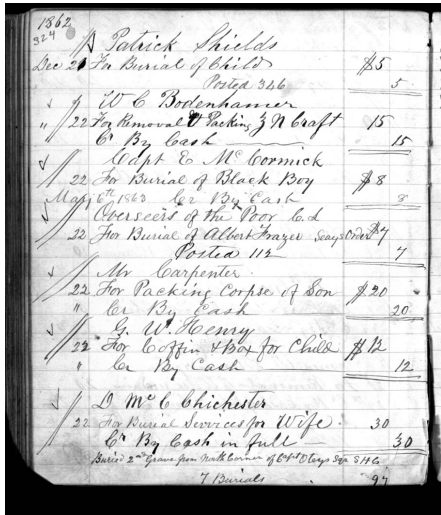 1862
324
Patrick Shields
Dec 21 For Burial of Child $5
Posted 346 5
W C Bodenhamer
" 22 For Removal & Packing J N Craft 15
Cr By Cash 15
Capt E McCormick
22 For Burial of Black Boy $8
May 6th 1863 Cr By Cash 8
Overseers of the Poor
22 For Burial of Albert Frazer Seays Order $7
Posted 112 7
Mr Carpenter
22 For Packing Corpse of Son $20
" Cr By Cash 20
G. W. Henry
22 For Coffin & Box for Child $12
" Cr By Cash 12
D McC Chichester
22 For Burial Services for Wife 30
Cr By Cash in full 30
Buried 2nd Grave from North Corner of Capt Oteys Sqr
7 Burials 97